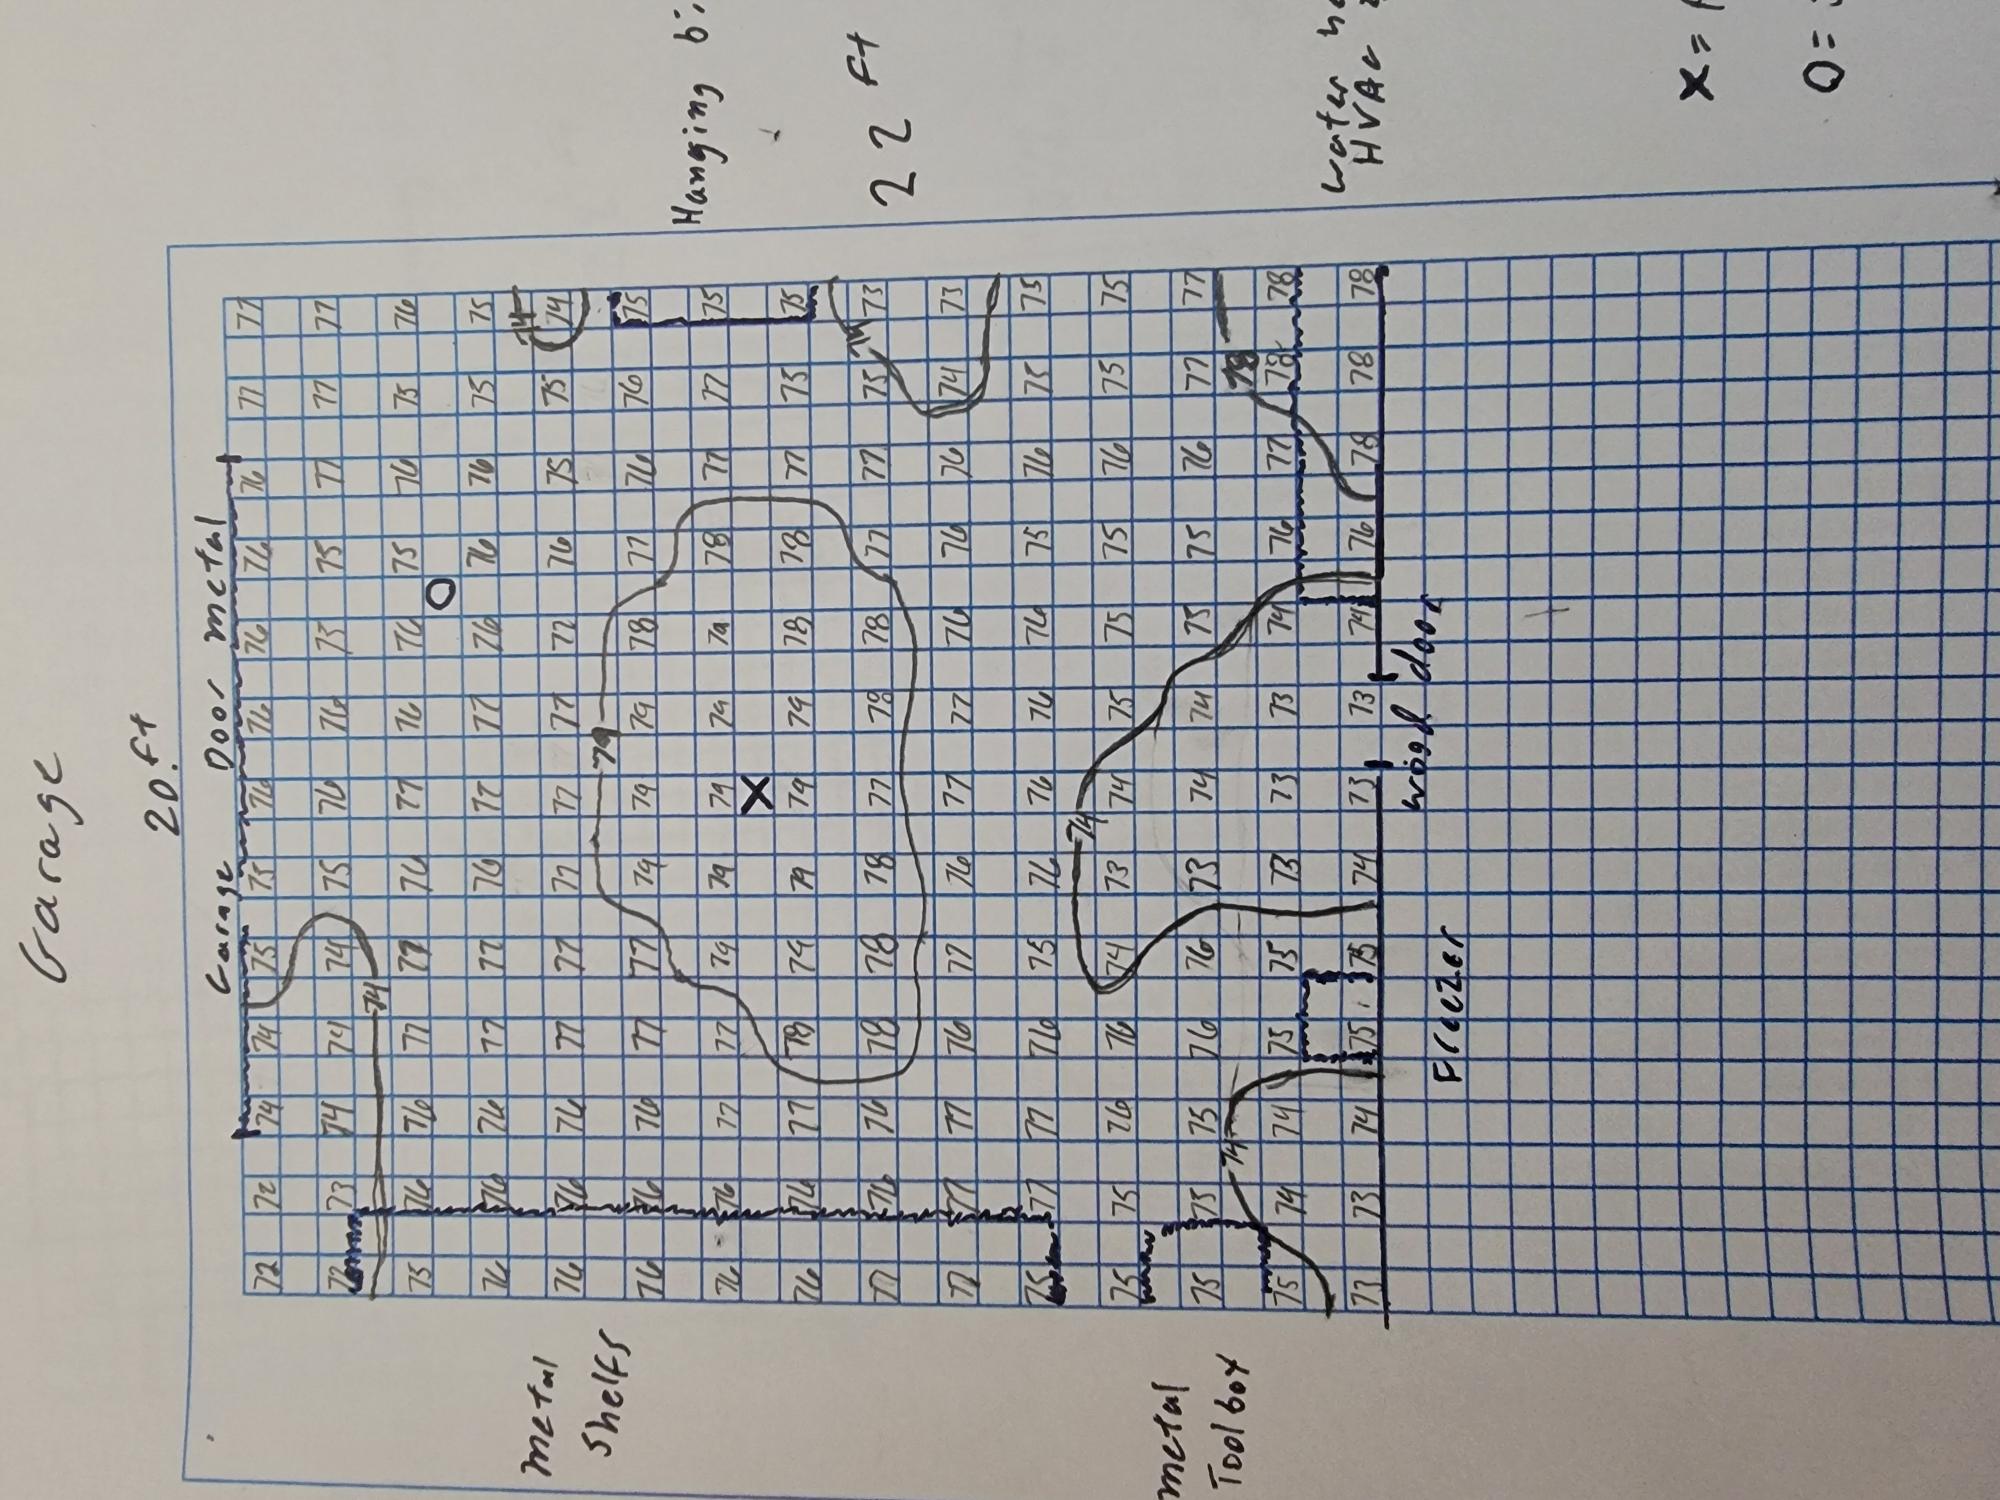 Garage
20 ft
Garage Door metal
72 72 74 74 75 75 76 76 76 76 76 77 77
72 73 74 74 74 75 76 76 75 75 77 77 77
74
75 76 76 77 77 76 77 76 76 75 76 75 76
O
76 76 76 77 77 76 77 77 76 76 76 75 75
74
metal
Shelfs
76 76 76 77 77 77 77 77 77 76 75 75 74
79
76 76 76 77 77 79 79 79 78 77 76 76 75
Hanging
76 76 77 77 79 79 79 79 79 78 77 77 75
X
76 76 77 78 79 79 79 79 78 78 77 75 75
74
77 76 76 78 78 78 77 78 78 77 77 75 73
22 ft
77 77 77 76 77 76 77 77 76 76 76 74 73
75 77 77 76 75 76 76 76 76 75 76 75 75
74
75 75 76 76 74 73 74 75 75 75 76 75 75
metal
Toolbox
75 75 75 76 76 73 74 74 75 75 76 77 77
74
78
75 74 74 75 75 73 73 73 74 76 77 78 78
water
HVAC
73 73 74 75 75 74 73 73 74 76 78 78 78
Freezer
wood door
X =
O =